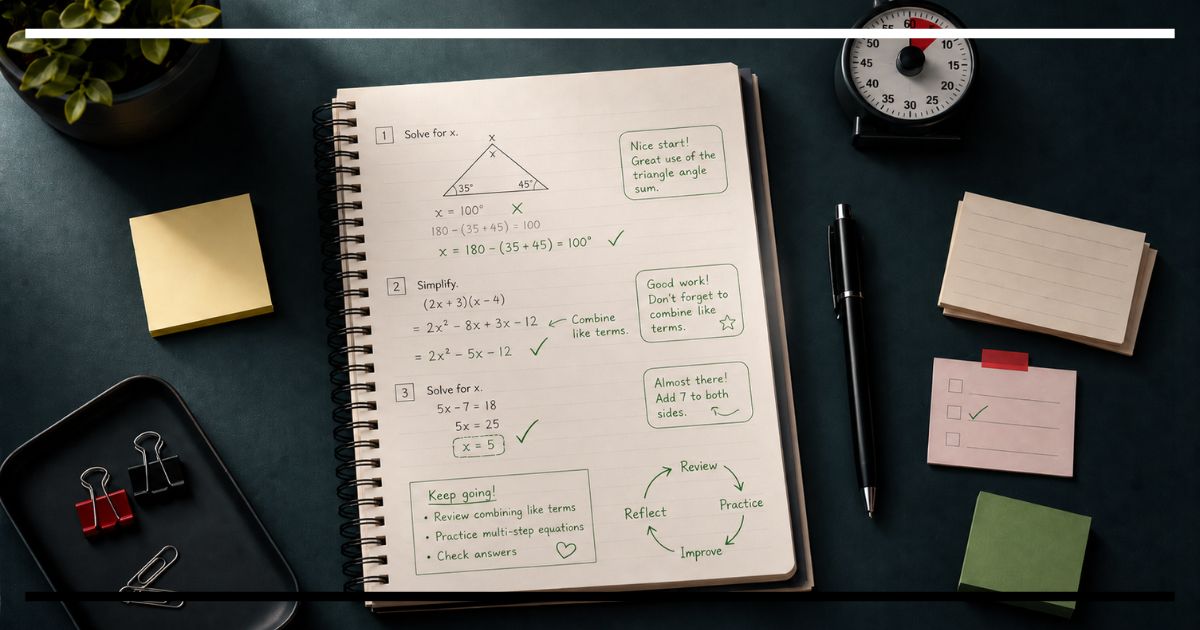 1 Solve for x.
x
x
35°
45°
x = 100° X
180 – (35 + 45) = 100
x = 180 – (35 + 45) = 100° ✓
Nice start!
Great use of the
triangle angle
sum.
2 Simplify.
(2x + 3)(x – 4)
= 2x² – 8x + 3x – 12 ← Combine
like terms.
= 2x² – 5x – 12 ✓
Good work!
Don't forget to
combine like
terms. ☆
3 Solve for x.
5x – 7 = 18
5x = 25
x = 5 ✓
Almost there!
Add 7 to both
sides.
Keep going!
• Review combining like terms
• Practice multi-step equations
• Check answers ♡
Review
Practice
Improve
Reflect
60
55
10
50
15
45
20
40
25
35
30